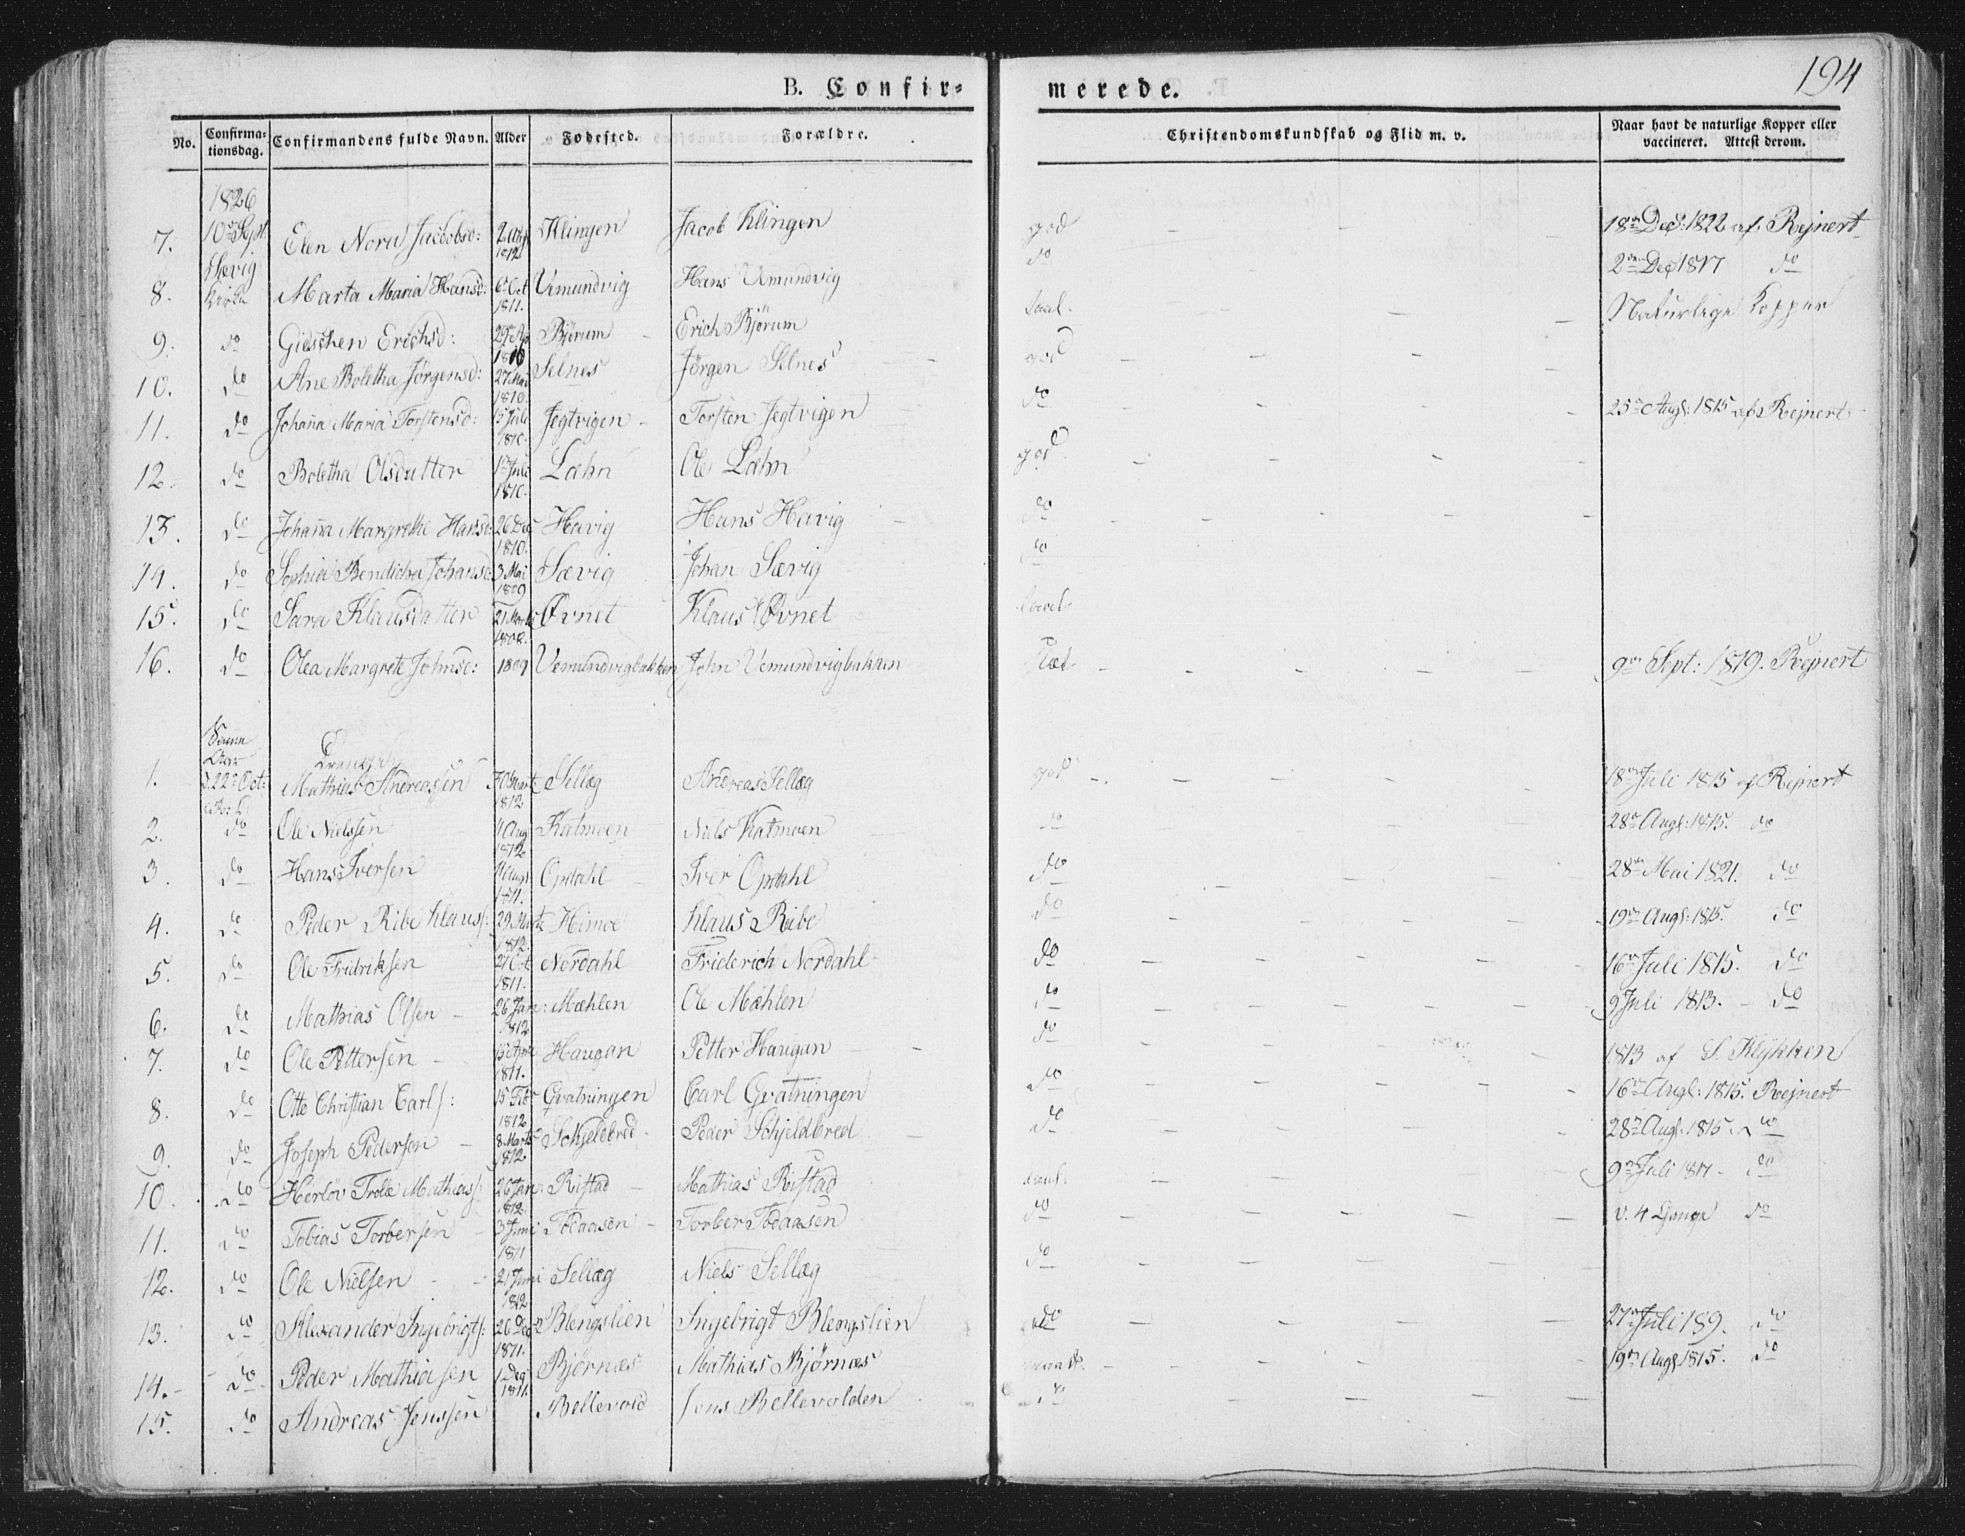 194
B. Confirmerede.
No. Confirmationsdag. Confirmandens fulde Navn. Alder Fødested. Forældre. Christendomskundskab og Flid m. v. Naar havt de naturlige Kopper eller vaccineret. Attest derom.
1826
7. 10de Sept. Elen Nora Jacobsd: 2 Aug 1812 Klingen Jacob Klingen god 18de Dec: 1822 af Rejnert
8. Sævig Kirke Marta Maria Hansd: 6 Oct 1811. Vemundvig Hans Vemundvig do 2den Dec 1817 do
9. do Gietschen Erichsd: Bjørum Erich Bjørum Naturlige Kopper
10. do Ane Boletha Jörgensd: 27 Mai 1810. Selnes Jörgen Selnes god
11. do Johana Maria Torstensd: 15 Juli 1810. Jegtvigen Torsten Jegtvigen do 25de Augs: 1815 af Rejnert
12. do Boletha Olsdatter 1 Juli 1810. Læhn Ole Læhn god
13. do Johana Margrethe Hansd: 26 Dec 1810. Havig Hans Havig do
14. do Sophia Bendicha Johansd: 3 Mai 1809 Sævig Johan Sævig do
15. do Sara Klausdatter 21 Marts 1808. Øvnet Klaus Øvnet
16. do Olea Margrete Johnsd: 1809 Vemundvigbakken John Vemundvigbakken 9de Spt: 1819. Rejnert
Samme Aar
Drenge
1. d. 22de Oct: Mathias Andreassen 30 Marts 1812 Sellæg Andreas Sellæg god 18de Juli 1815 af Rejnert
2. do Ole Nielssen 4 Aug 1812 Katmoen Niels Katmoen do 28de Augs: 1815. do
3. do Hans Iversen Augs 1811. Opdahl Iver Opdahl do 28de Mai 1821. do
4. do Peder Ribe Klauss: 29 Marts 1812. Himoe Klaus Ribe do 19de Augs: 1815. do
5. do Ole Fridriksen 27 Oct 1811. Nordahl Friderich Nordahl do 16de Juli 1815. do
6. do Mathias Olsen 26 Jan: 1812 Mæhlen Ole Mæhlen do 9 Juli 1813. do
7. do Ole Pettersen 15 1811. Haugan Petter Haugan do 1813 af S. Klykken
8. do Otte Christian Carls: 15 Febr 1812 Gratningen Carl Gratningen do 16de Augs: 1815. Rejnert
9. do Joseph Pedersen 8 Marts 1812 Schjeldbred Peder Schjeldbred do 28de Augs: 1815. do
10. do Herlöv Trolæ Mathias: 26 Jan: 1812. Ristad Mathias Ristad 9de Juli 1817 do
11. do Tobias Torbersen 3 Juni 1811 Todaasen Torber Todaasen do v. 4 Gange do
12. do Ole Nielsen 21 Juni 1812 Sellæg Niels Sellæg do
13. do Alexander Ingebrigts: 26 Dec 1811. Blengslien Ingebrigt Blengslien do 27de Juli 189. do
14. do Peder Mathiasen 1 Dec 1811. Bjørnæs Mathias Bjørnæs 19de Augs 1815. do
15. do Andreas Jenssen Bellevold Jens Bellevolden do